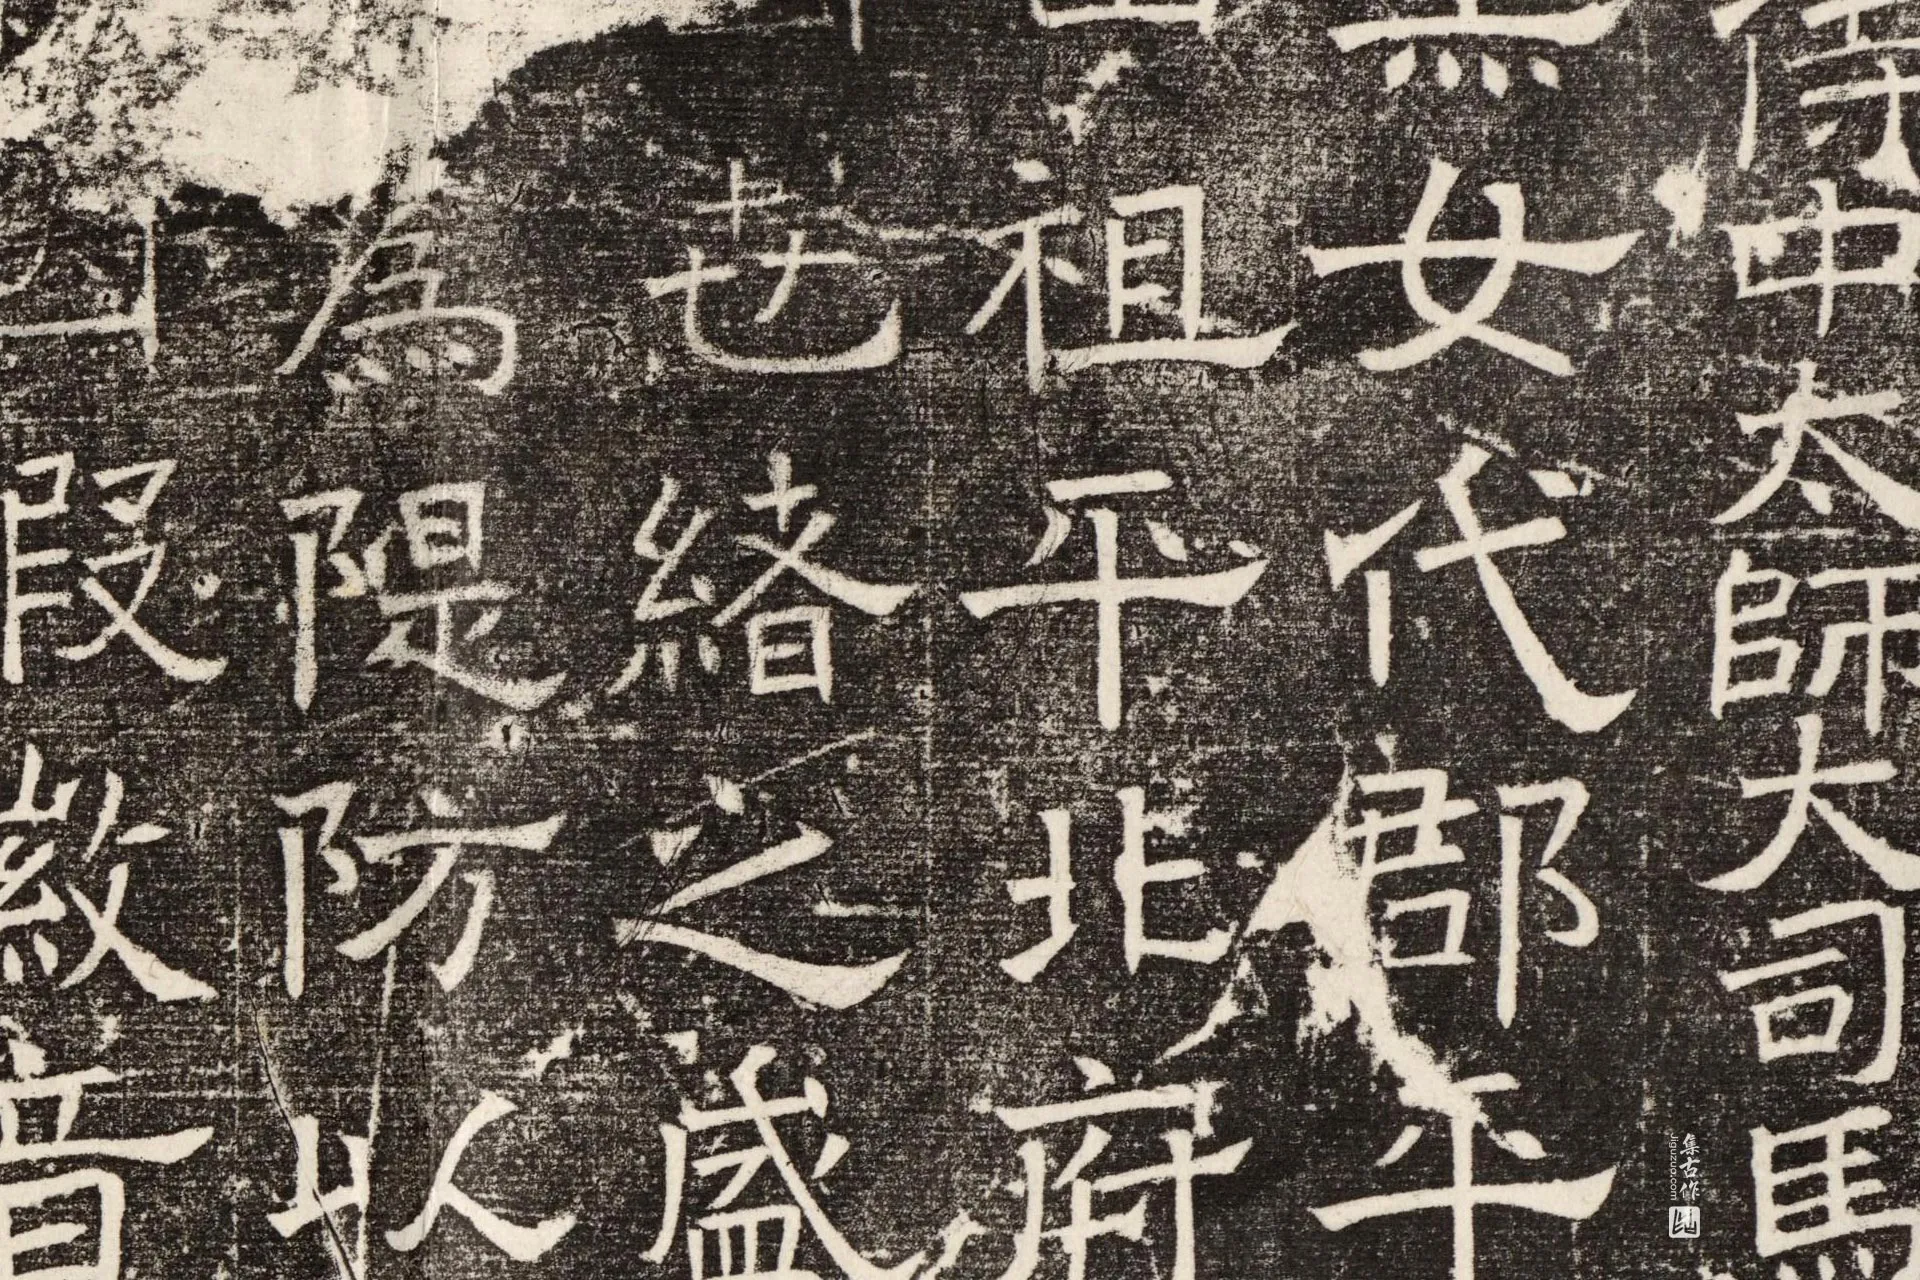 中太師大司馬
女代郡平
祖平北府
世緒之盛
為隄防以
徽音
集古作
jiguzuo.com